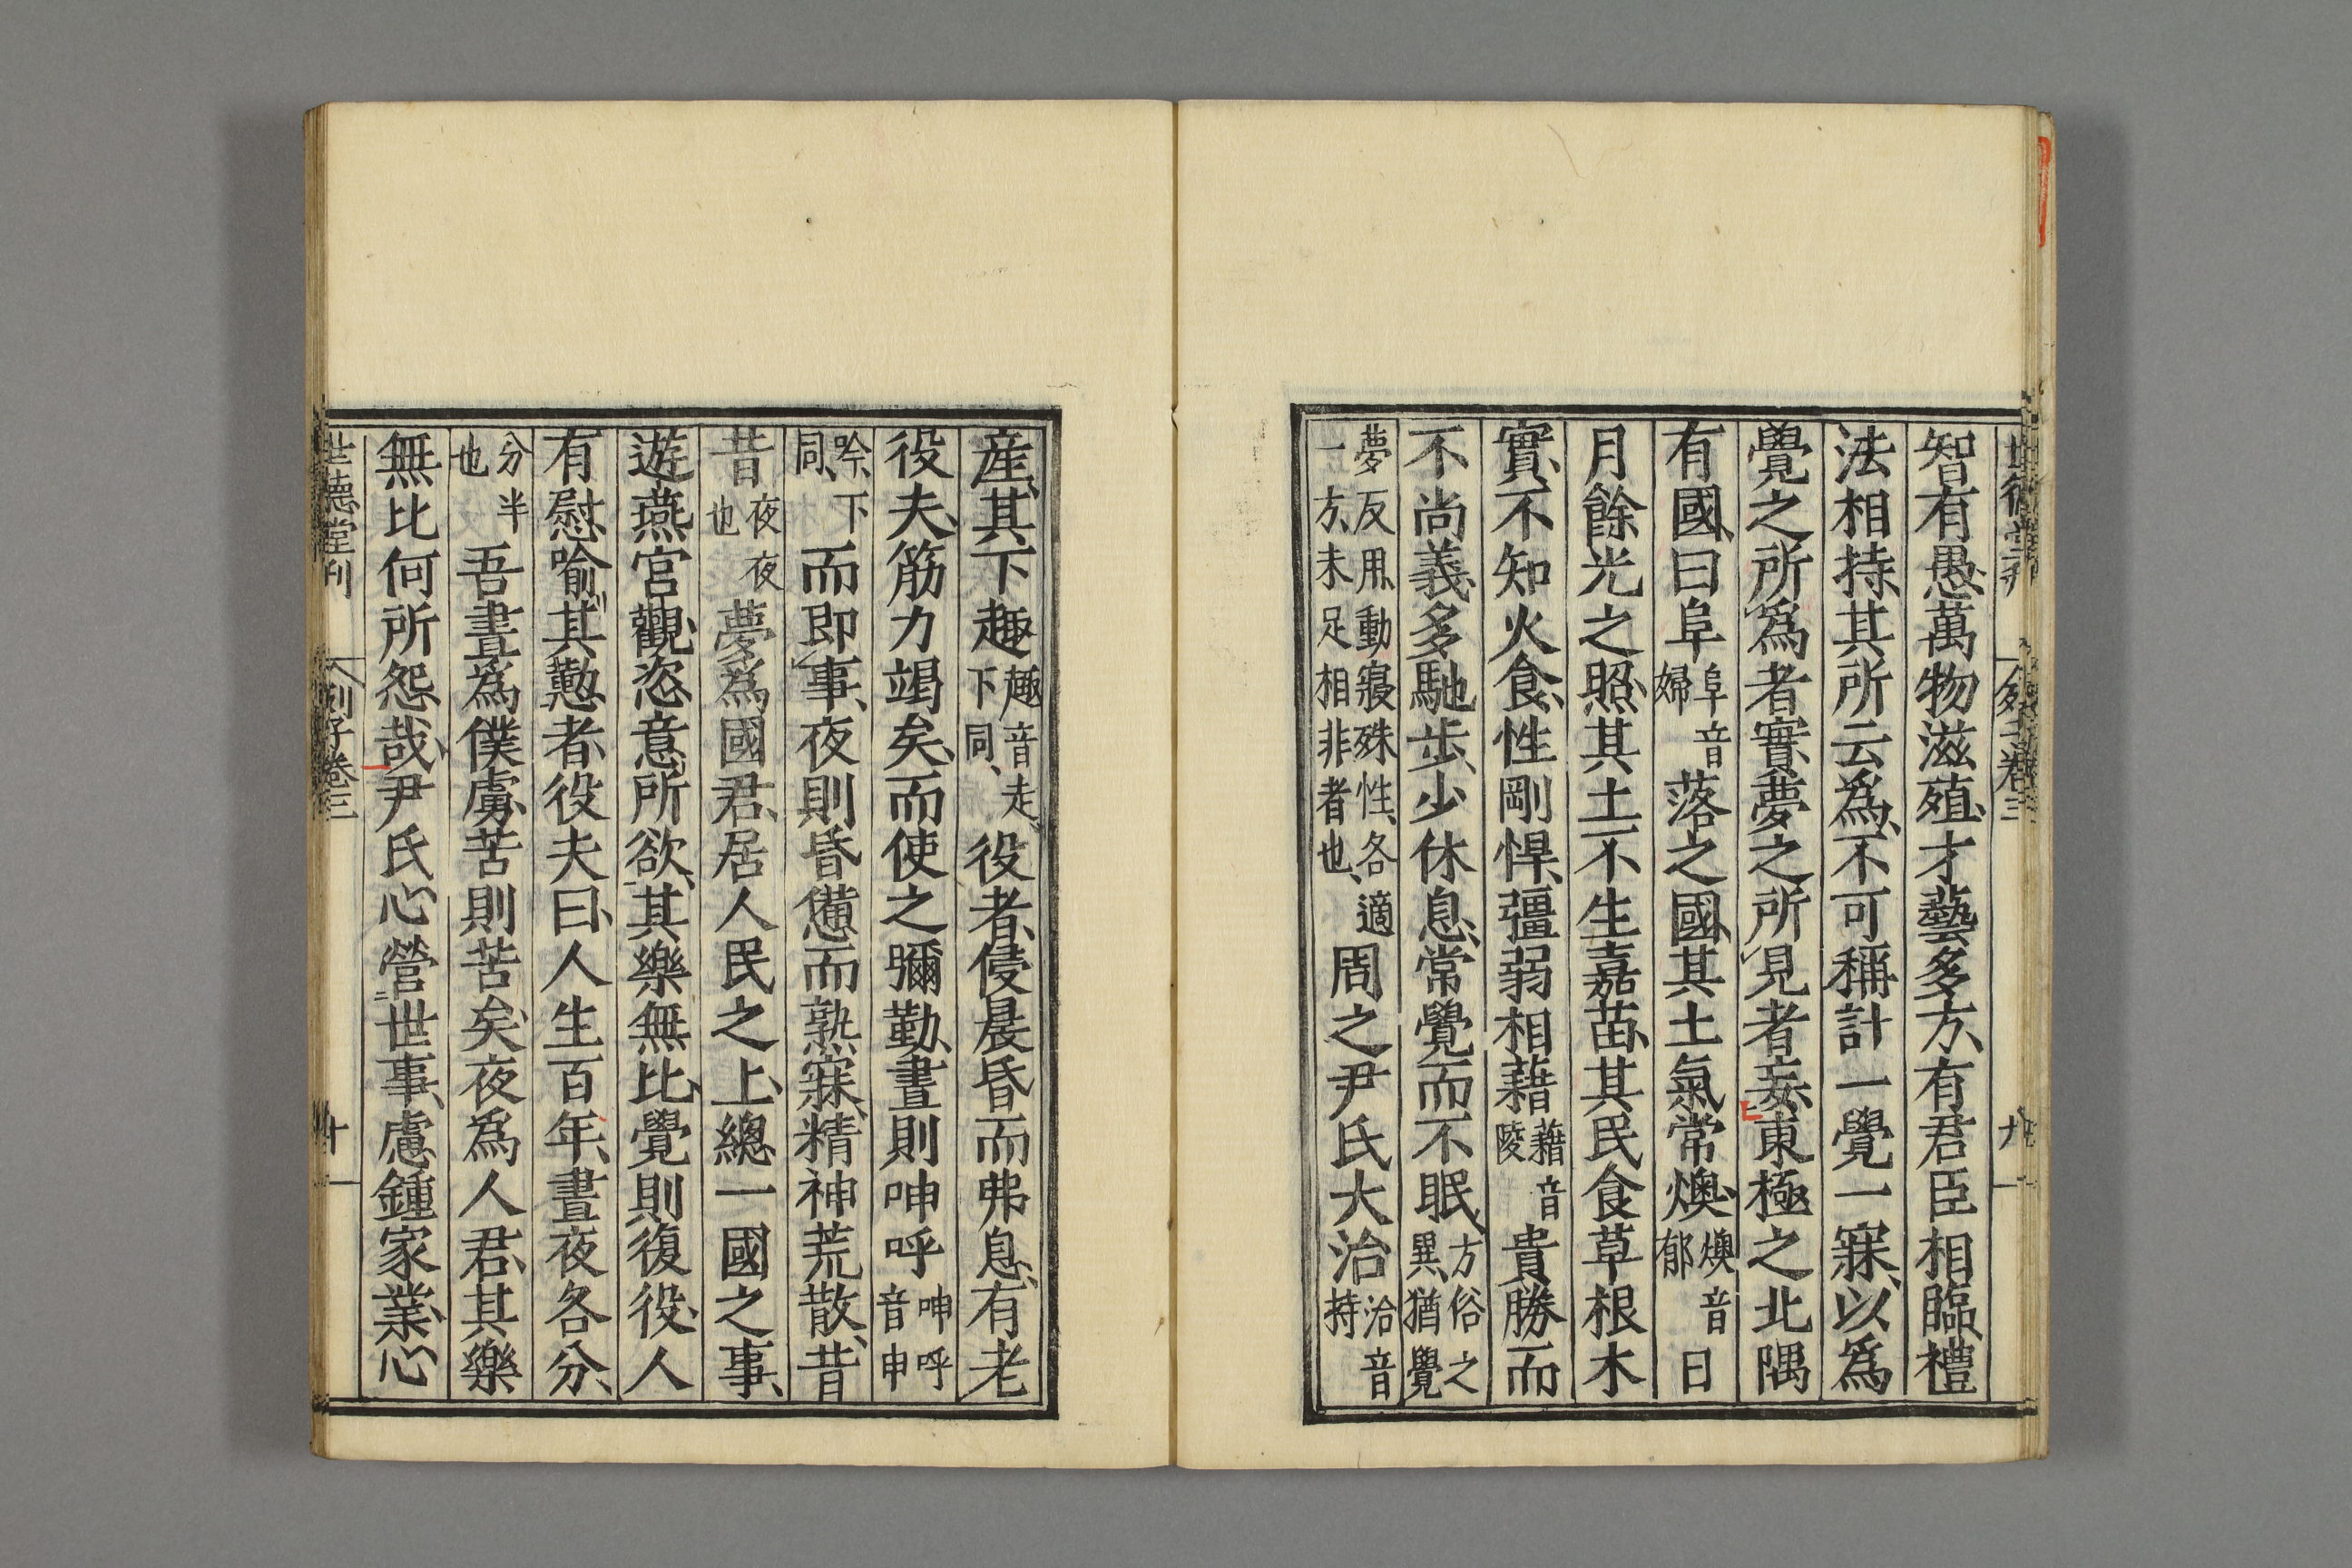 智有愚、萬物滋殖、才藝多方、有君臣相臨禮
法相持、其所云爲、不可稱計一覺一寐、以爲
覺之所爲者實、夢之所見者妄、東極之北隅
有國、曰阜阜音婦落之國、其土氣常燠、燠音郁日
月餘光之照、其土不生嘉苗、其民食草根木
實、不知火食、性剛悍、彊弱相藉藉音陵貴勝而
不尚義、多馳步、少休息、常覺而不眠、方俗之異、猶覺
夢反用、動寢殊性、各適一方、未足相非者也、周之尹氏大治治音持
產、其下趣趣音走、下同、役者、侵晨昏而弗息、有老
役夫、筋力竭矣、而使之彌勤、晝則呻呼呻呼音申
吟、下同、而即事、夜則昏憊而熟寐、精神荒散、昔
昔夜夜也夢爲國君、居人民之上、總一國之事、
遊燕宮觀、恣意所欲、其樂無比、覺則復役、人
有慰喻其懃者、役夫曰、人生百年、晝夜各分、
分半也吾晝爲僕虜、苦則苦矣、夜爲人君、其樂
無比何所怨哉、尹氏心營世事、慮鍾家業、心
世德堂刊 列子卷三 十